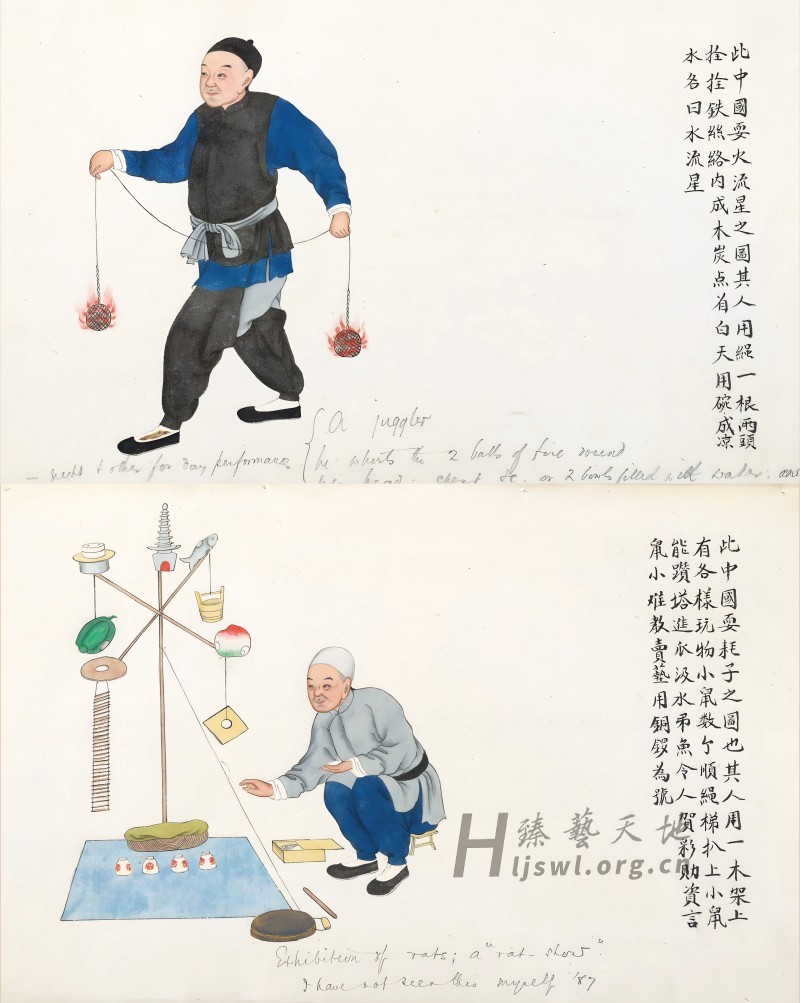 此中國耍火流星之圖其人用繩一根兩頭
拴拴鉄絲絡内成木炭点着白天用碗成凉
水名曰水流星
A juggler
he whirls the 2 balls of fire round
head - chest &c. or 2 bowls filled with water.
for Day performances
此中國耍耗子之圖也其人用一木架上
有各樣玩物小鼠数个順繩梯扒上小鼠
能躦塔進瓜汲水弔魚令人賀彩助資言
鼠小难教賣藝用銅鑼為號
臻藝天地
Hljswl.org.cn
Exhibition of rats; a "rat-show".
I have not seen this myself '87